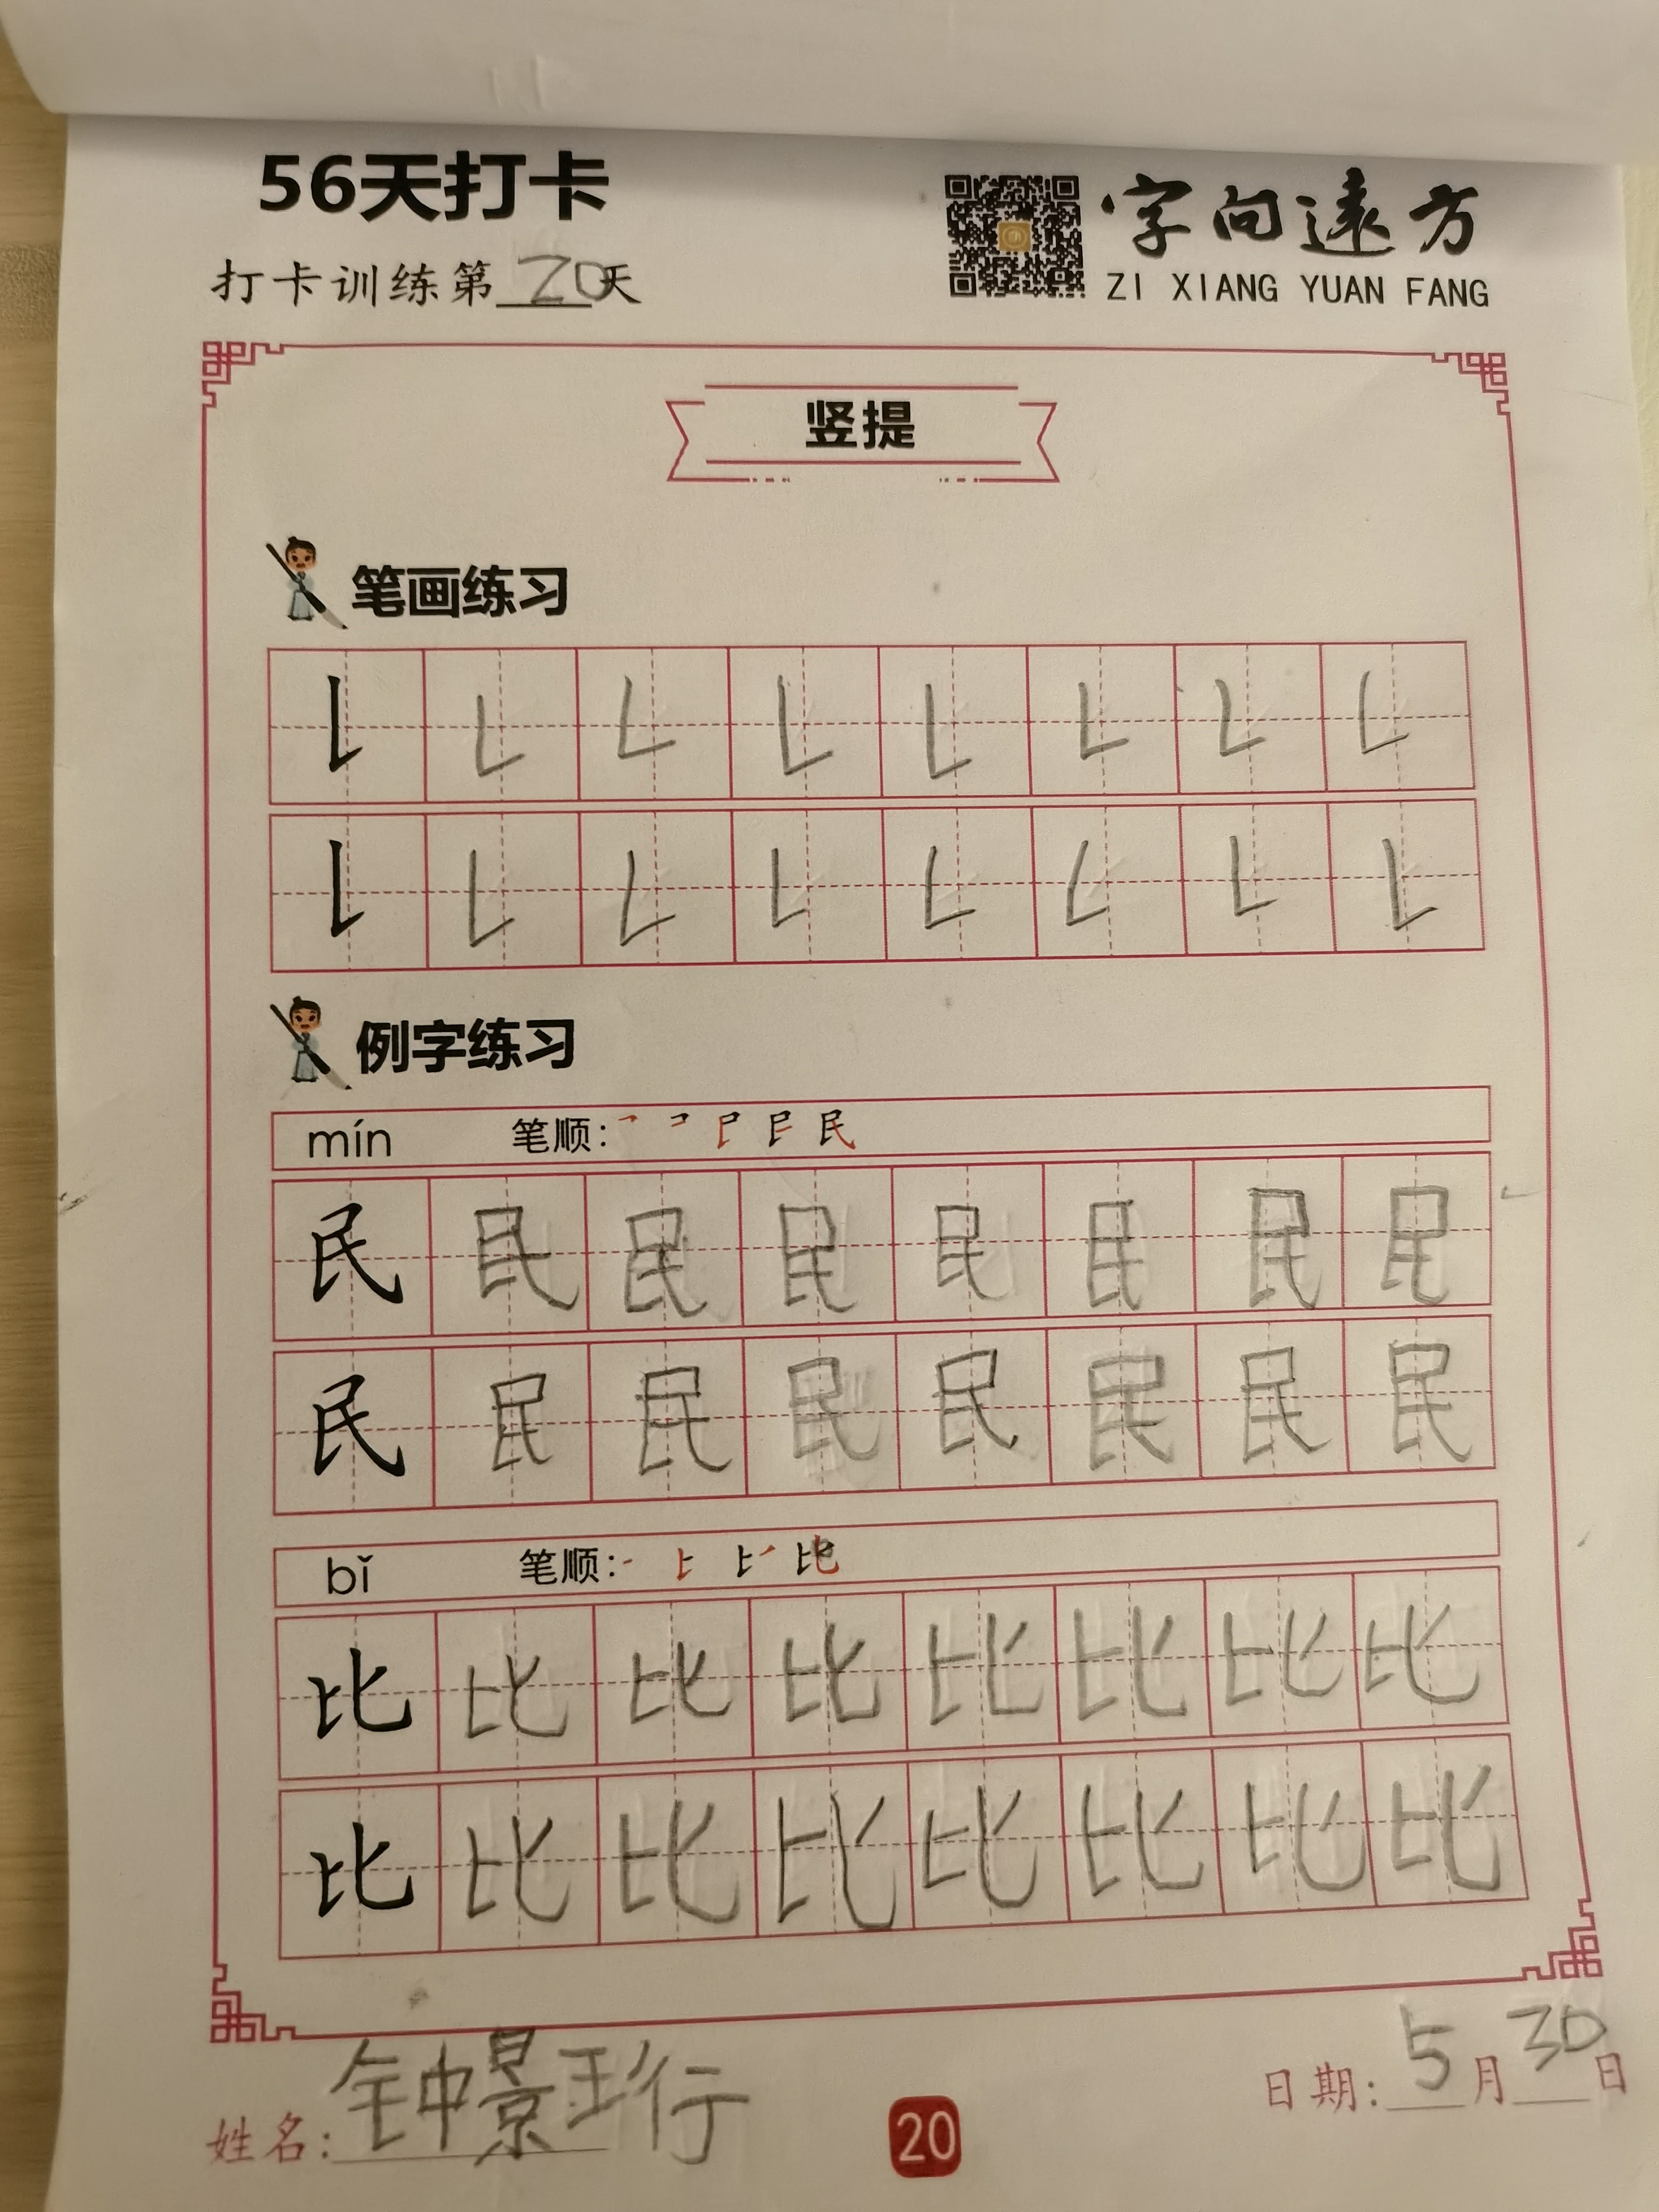 56天打卡
字向遠方
打卡训练第20天
ZI XIANG YUAN FANG
竖提
笔画练习
例字练习
mín 笔顺:
民 民 民 民 民 民 民 民
民 民 民 民 民 民 民 民
bǐ 笔顺:
比 比 比 比 比 比 比 比
比 比 比 比 比 比 比 比
姓名:钟景珩
日期:5月30日
20